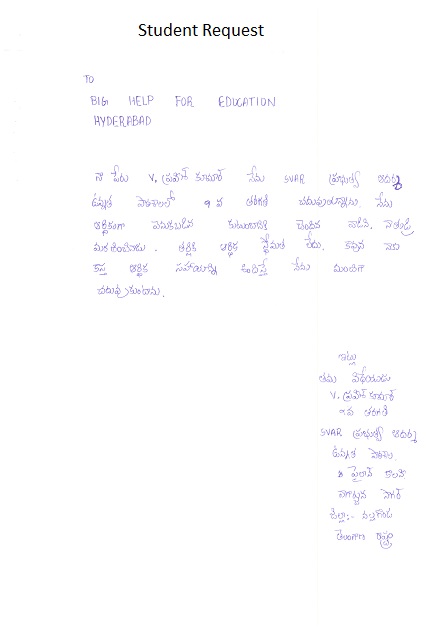 Student Request
TO
BIG HELP FOR EDUCATION
HYDERABAD
నా పేరు V. ప్రవీణ్ కుమార్ నేను SVAR ప్రభుత్వ ఆదర్శ
ఉన్నత పాఠశాలలో 9 వ తరగతి చదువుతున్నాను. నేను
ఆర్థికంగా వెనుకబడిన కుటుంబానికి చెందిన వాడిని. నా తండ్రి
మరణించినాడు. తల్లికి ఆర్థిక స్థోమత లేదు. కావున నాకు
కాస్త ఆర్థిక సహాయాన్ని అందిస్తే నేను ముందుగా
చదువుకుంటాను.
ఇట్లు
తమ విధేయుడు
V. ప్రవీణ్ కుమార్
9వ తరగతి
SVAR ప్రభుత్వ ఆదర్శ
ఉన్నత పాఠశాల
పైలాన్ కాలనీ
నాగార్జున సాగర్
జిల్లా:- నల్గొండ
తెలంగాణ రాష్ట్రం